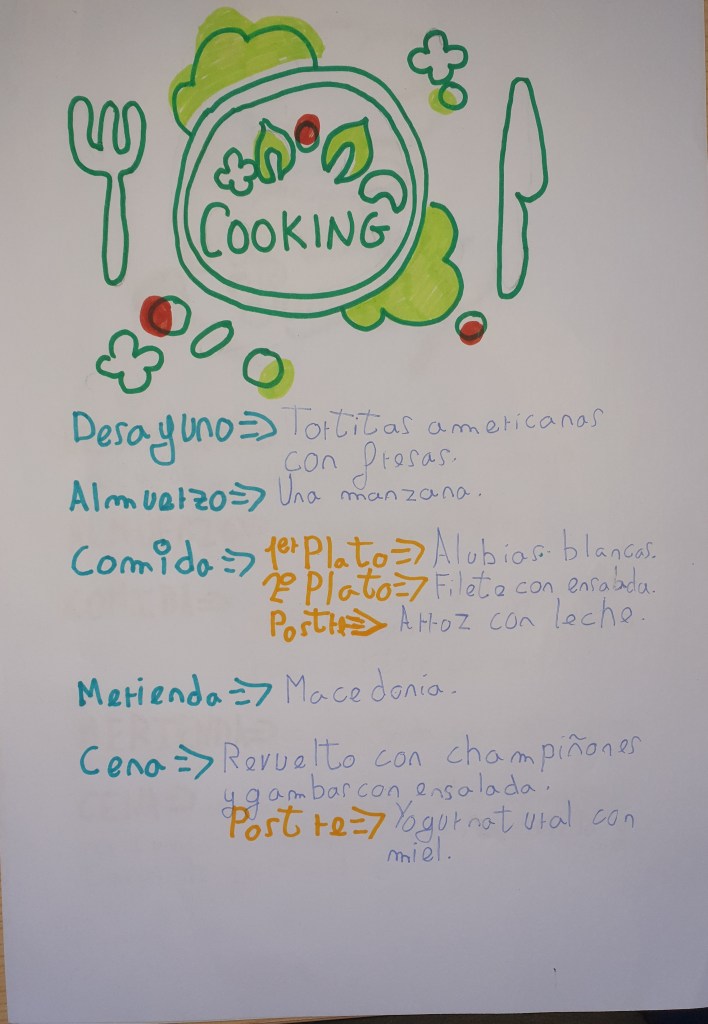 COOKING
Desayuno => Tortitas americanas
con fresas.
Almuerzo => Una manzana.
Comida => 1er Plato => Alubias blancas.
2º Plato => Filete con ensalada.
Postre => Arroz con leche.
Merienda => Macedonia.
Cena => Revuelto con champiñones
y gambas con ensalada.
Postre => Yogur natural con
miel.